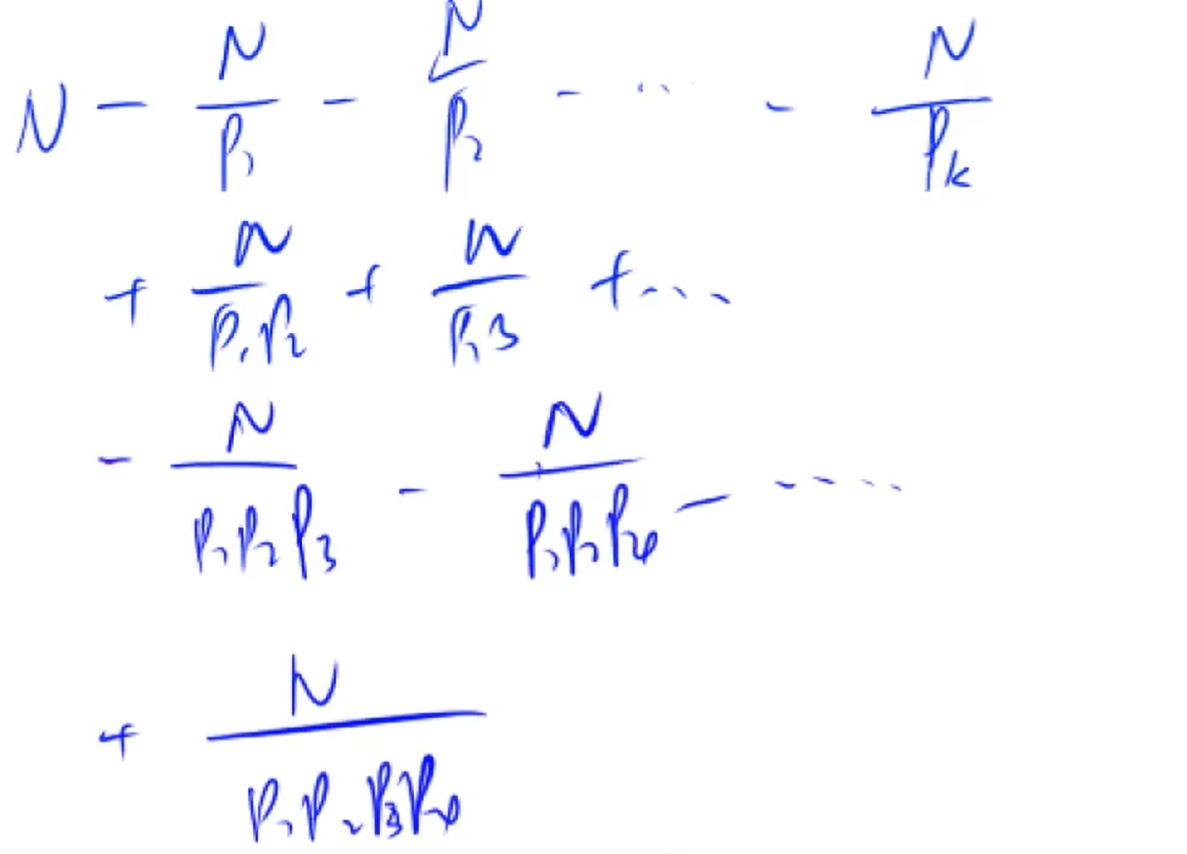 N - N/P₁ - N/P₂ - ... - N/Pₖ
+ N/P₁P₂ + N/P₁3 + ...
- N/P₁P₂P₃ - N/P₁P₂P₄ - ...
+ N/P₁P₂P₃P₄